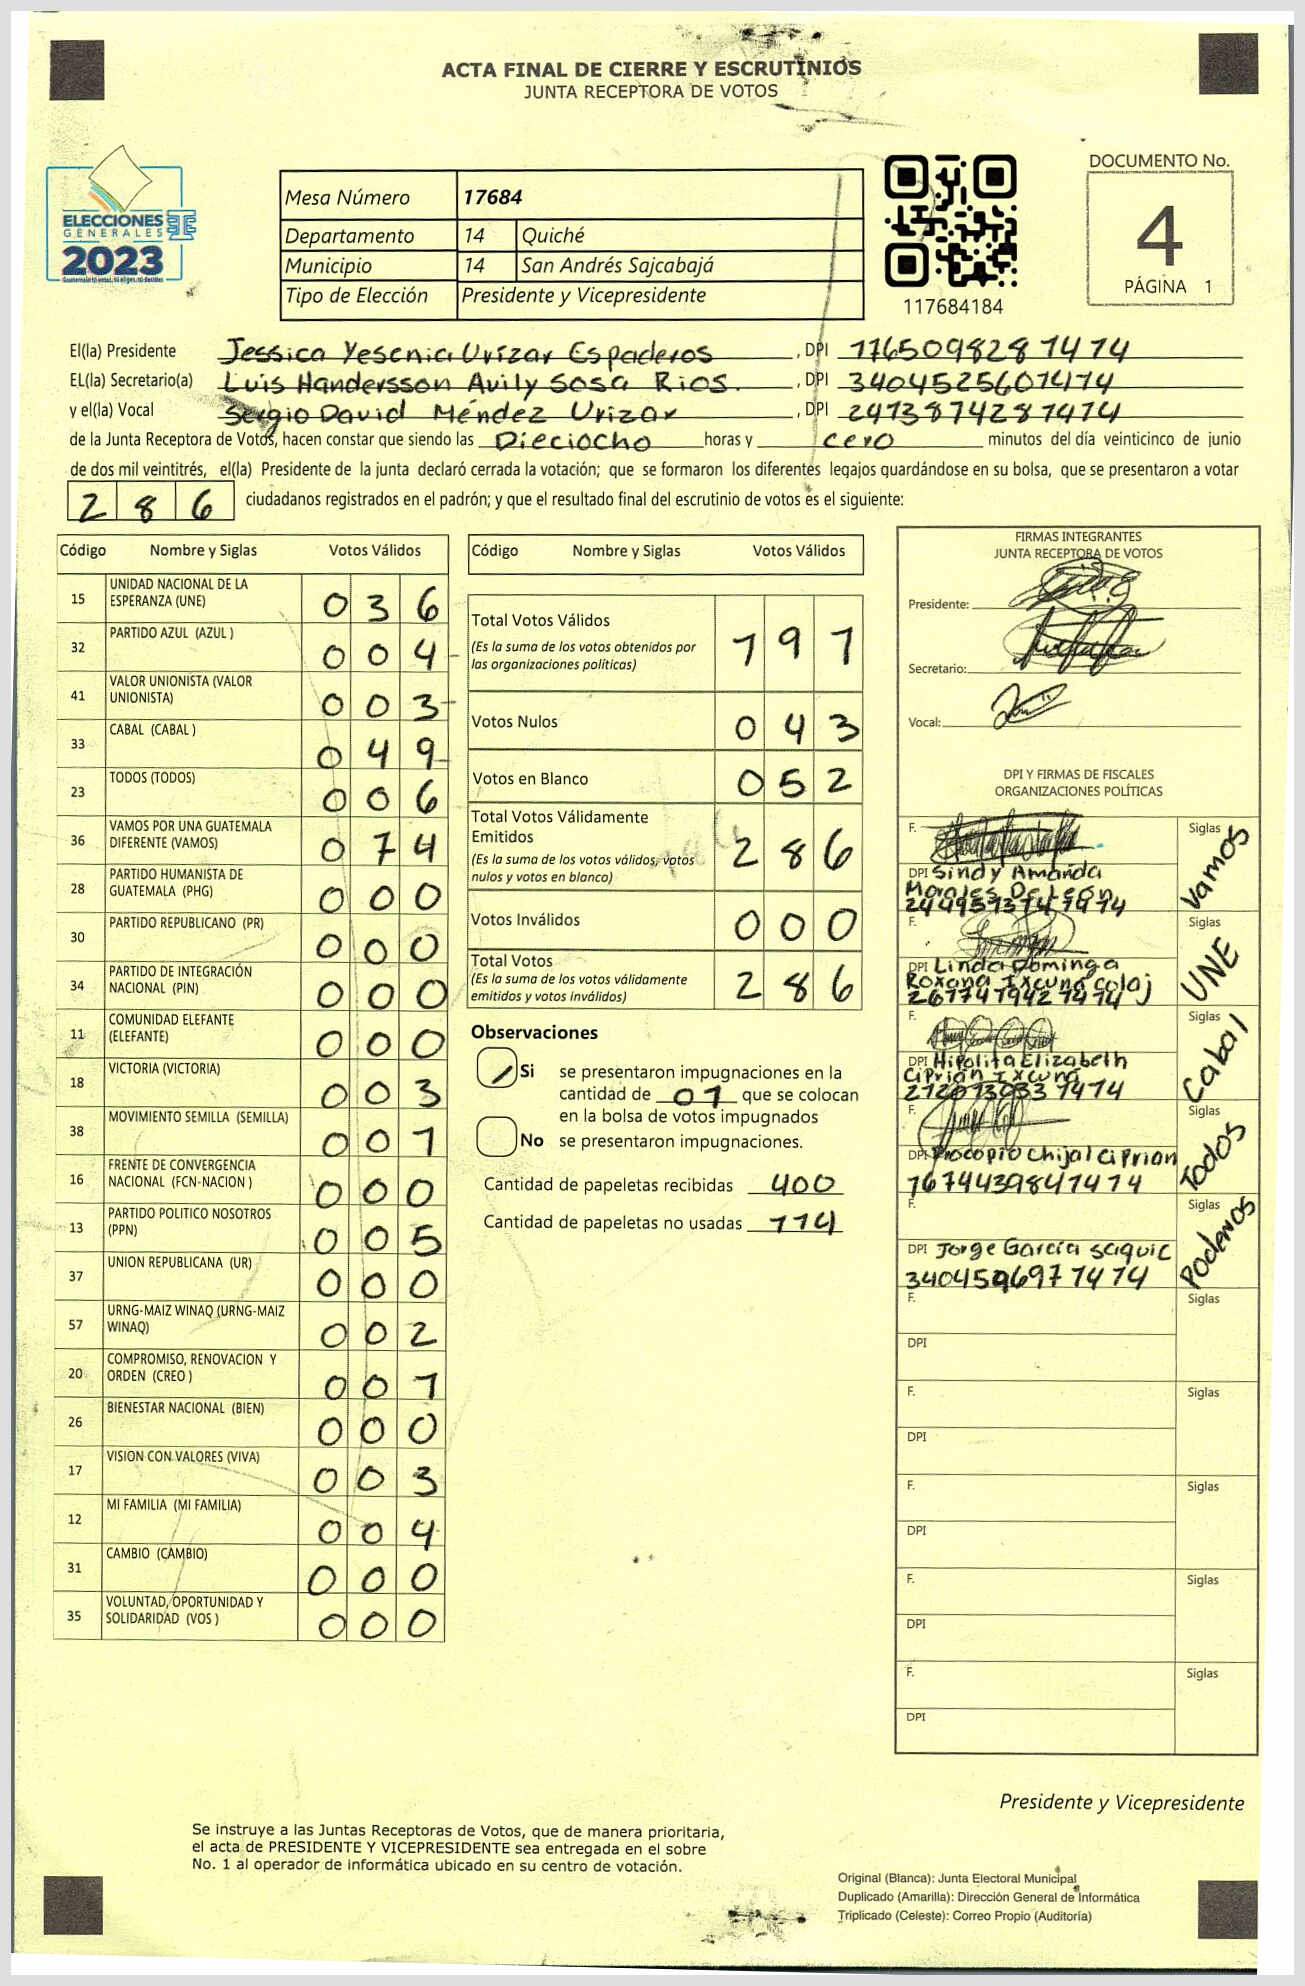 ACTA FINAL DE CIERRE Y ESCRUTINIOS
JUNTA RECEPTORA DE VOTOS
ELECCIONES
GENERALES
2023
Mesa Número 17684
Departamento 14 Quiché
Municipio 14 San Andrés Sajcabajá
Tipo de Elección Presidente y Vicepresidente
117684184
DOCUMENTO No.
4
PÁGINA 1
El(la) Presidente Jessica Yesenia Urízar Espaderos, DPI 1165098281414
EL(la) Secretario(a) Luis Handersson Avily Sosa Rios., DPI 3404525601414
y el(la) Vocal Sergio David Méndez Urizar, DPI 2413874281414
de la Junta Receptora de Votos, hacen constar que siendo las Dieciocho horas y cero minutos del día veinticinco de junio
de dos mil veintitrés, el(la) Presidente de la junta declaró cerrada la votación; que se formaron los diferentes legajos guardándose en su bolsa, que se presentaron a votar
286 ciudadanos registrados en el padrón; y que el resultado final del escrutinio de votos es el siguiente:
Código Nombre y Siglas Votos Válidos
15 UNIDAD NACIONAL DE LA ESPERANZA (UNE) 036
32 PARTIDO AZUL (AZUL ) 004
41 VALOR UNIONISTA (VALOR UNIONISTA) 003
33 CABAL (CABAL ) 049
23 TODOS (TODOS) 006
36 VAMOS POR UNA GUATEMALA DIFERENTE (VAMOS) 074
28 PARTIDO HUMANISTA DE GUATEMALA (PHG) 000
30 PARTIDO REPUBLICANO (PR) 000
34 PARTIDO DE INTEGRACIÓN NACIONAL (PIN) 000
11 COMUNIDAD ELEFANTE (ELEFANTE) 000
18 VICTORIA (VICTORIA) 003
38 MOVIMIENTO SEMILLA (SEMILLA) 001
16 FRENTE DE CONVERGENCIA NACIONAL (FCN-NACION ) 000
13 PARTIDO POLITICO NOSOTROS (PPN) 005
37 UNION REPUBLICANA (UR) 000
57 URNG-MAIZ WINAQ (URNG-MAIZ WINAQ) 002
20 COMPROMISO, RENOVACION Y ORDEN (CREO ) 007
26 BIENESTAR NACIONAL (BIEN) 000
17 VISION CON VALORES (VIVA) 003
12 MI FAMILIA (MI FAMILIA) 004
31 CAMBIO (CAMBIO) 000
35 VOLUNTAD, OPORTUNIDAD Y SOLIDARIDAD (VOS ) 000
Código Nombre y Siglas Votos Válidos
Total Votos Válidos 191
(Es la suma de los votos obtenidos por
las organizaciones políticas)
Votos Nulos 043
Votos en Blanco 052
Total Votos Válidamente
Emitidos 286
(Es la suma de los votos válidos, votos
nulos y votos en blanco)
Votos Inválidos 000
Total Votos 286
(Es la suma de los votos válidamente
emitidos y votos inválidos)
Observaciones
Si se presentaron impugnaciones en la
cantidad de 01 que se colocan
en la bolsa de votos impugnados
No se presentaron impugnaciones.
Cantidad de papeletas recibidas 400
Cantidad de papeletas no usadas 114
FIRMAS INTEGRANTES
JUNTA RECEPTORA DE VOTOS
Presidente:
Secretario:
Vocal:
DPI Y FIRMAS DE FISCALES
ORGANIZACIONES POLÍTICAS
F. Siglas Vamos
DPI Sindy Amanda
Morales De León
F. Siglas UNE
DPI Linda Dominga
Roxana Ixcuna Colaj
2617419421414
F. Siglas Cabal
DPI Hipolita Elizabeth
Ciprián Ixcuna
F. Siglas Todos
DPI Procopio Chijal Ciprian
1674439841414
F. Siglas Podemos
DPI Jorge García Saquic
3404596971414
F. Siglas
DPI
F. Siglas
DPI
F. Siglas
DPI
F. Siglas
DPI
F. Siglas
DPI
Presidente y Vicepresidente
Se instruye a las Juntas Receptoras de Votos, que de manera prioritaria,
el acta de PRESIDENTE Y VICEPRESIDENTE sea entregada en el sobre
No. 1 al operador de informática ubicado en su centro de votación.
Original (Blanca): Junta Electoral Municipal
Duplicado (Amarilla): Dirección General de Informática
Triplicado (Celeste): Correo Propio (Auditoría)